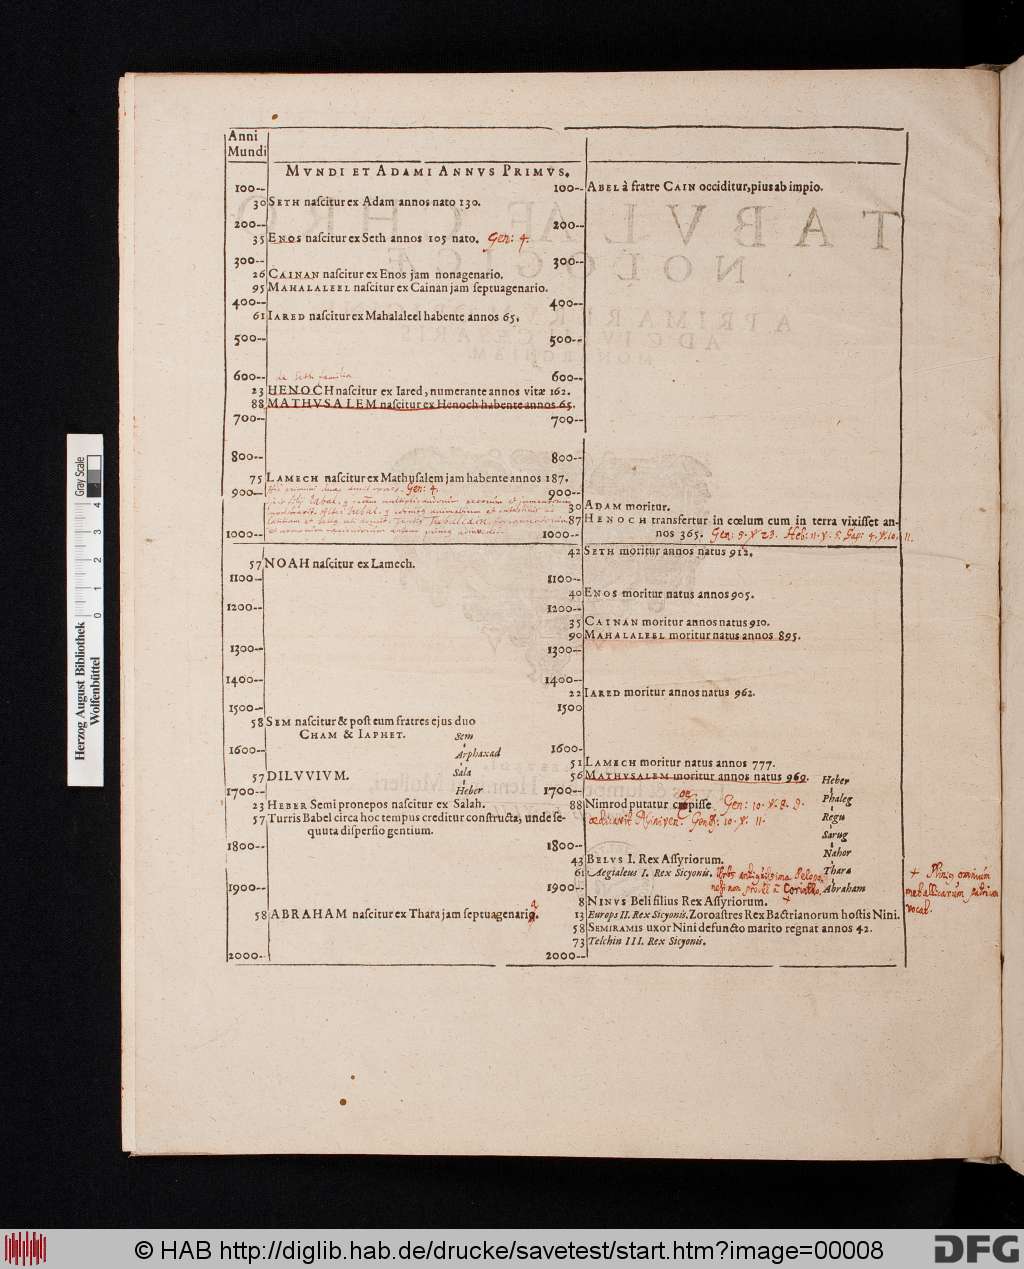 Anni
Mundi
MVNDI ET ADAMI ANNVS PRIMVS.
100--
30 SETH naſcitur ex Adam annos nato 130.
200--
35 ENOS naſcitur ex Seth annos 105 nato. Gen: 4.
300--
26 CAINAN naſcitur ex Enos jam nonagenario.
95 MAHALALEEL naſcitur ex Cainan jam ſeptuagenario.
400--
61 IARED naſcitur ex Mahalaleel habente annos 65.
500--
600--
de Seth familia
23 HENOCH naſcitur ex Iared, numerante annos vitæ 162.
88 MATHVSALEM naſcitur ex Henoch habente annos 65.
700--
800--
75 LAMECH naſcitur ex Mathuſalem jam habente annos 187.
Gen: 4.
900--
1000--
57 NOAH naſcitur ex Lamech.
1100--
1200--
1300--
1400--
1500--
58 SEM naſcitur & poſt eum fratres ejus duo
CHAM & IAPHET.
Sem
Arphaxad
Sala
Heber
1600--
57 DILVVIVM.
1700--
23 HEBER Semi pronepos naſcitur ex Salah.
57 Turris Babel circa hoc tempus creditur conſtructa, unde ſe-
quuta diſperſio gentium.
1800--
1900--
58 ABRAHAM naſcitur ex Thara jam ſeptuagenario.
2000--
100-- ABEL à fratre CAIN occiditur, pius ab impio.
200--
300--
400--
500--
600--
700--
800--
900--
30 ADAM moritur.
87 HENOCH transfertur in cœlum cum in terra vixiſſet an-
nos 365. Gen: 5. v. 23. Heb: 11. v. 5. Sap: 4. v. 10. 11.
1000--
42 SETH moritur annos natus 912.
1100--
40 ENOS moritur natus annos 905.
1200--
35 CAINAN moritur annos natus 910.
90 MAHALALEEL moritur natus annos 895.
1300--
1400--
22 IARED moritur annos natus 962.
1500
1600-
51 LAMECH moritur natus annos 777.
56 MATHVSALEM moritur annos natus 969.
1700--
Heber
Phaleg
Regu
Sarug
Nahor
Thara
Abraham
88 Nimrod putatur cœpiſſe Gen: 10. v. 8. 9.
ædificavit Niniven. Genes: 10. v. 11.
1800--
43 BELVS I. Rex Aſſyriorum.
61 Aegialeus I. Rex Sicyonis.
1900--
8 NINVS Beli filius Rex Aſſyriorum.
13 Europs II. Rex Sicyonis. Zoroaſtres Rex Bactrianorum hoſtis Nini.
58 SEMIRAMIS uxor Nini defuncto marito regnat annos 42.
73 Telchin III. Rex Sicyonis.
2000--
Gray Scale
0 1 2 3 4
Herzog August Bibliothek
Wolfenbüttel
© HAB http://diglib.hab.de/drucke/savetest/start.htm?image=00008
DFG